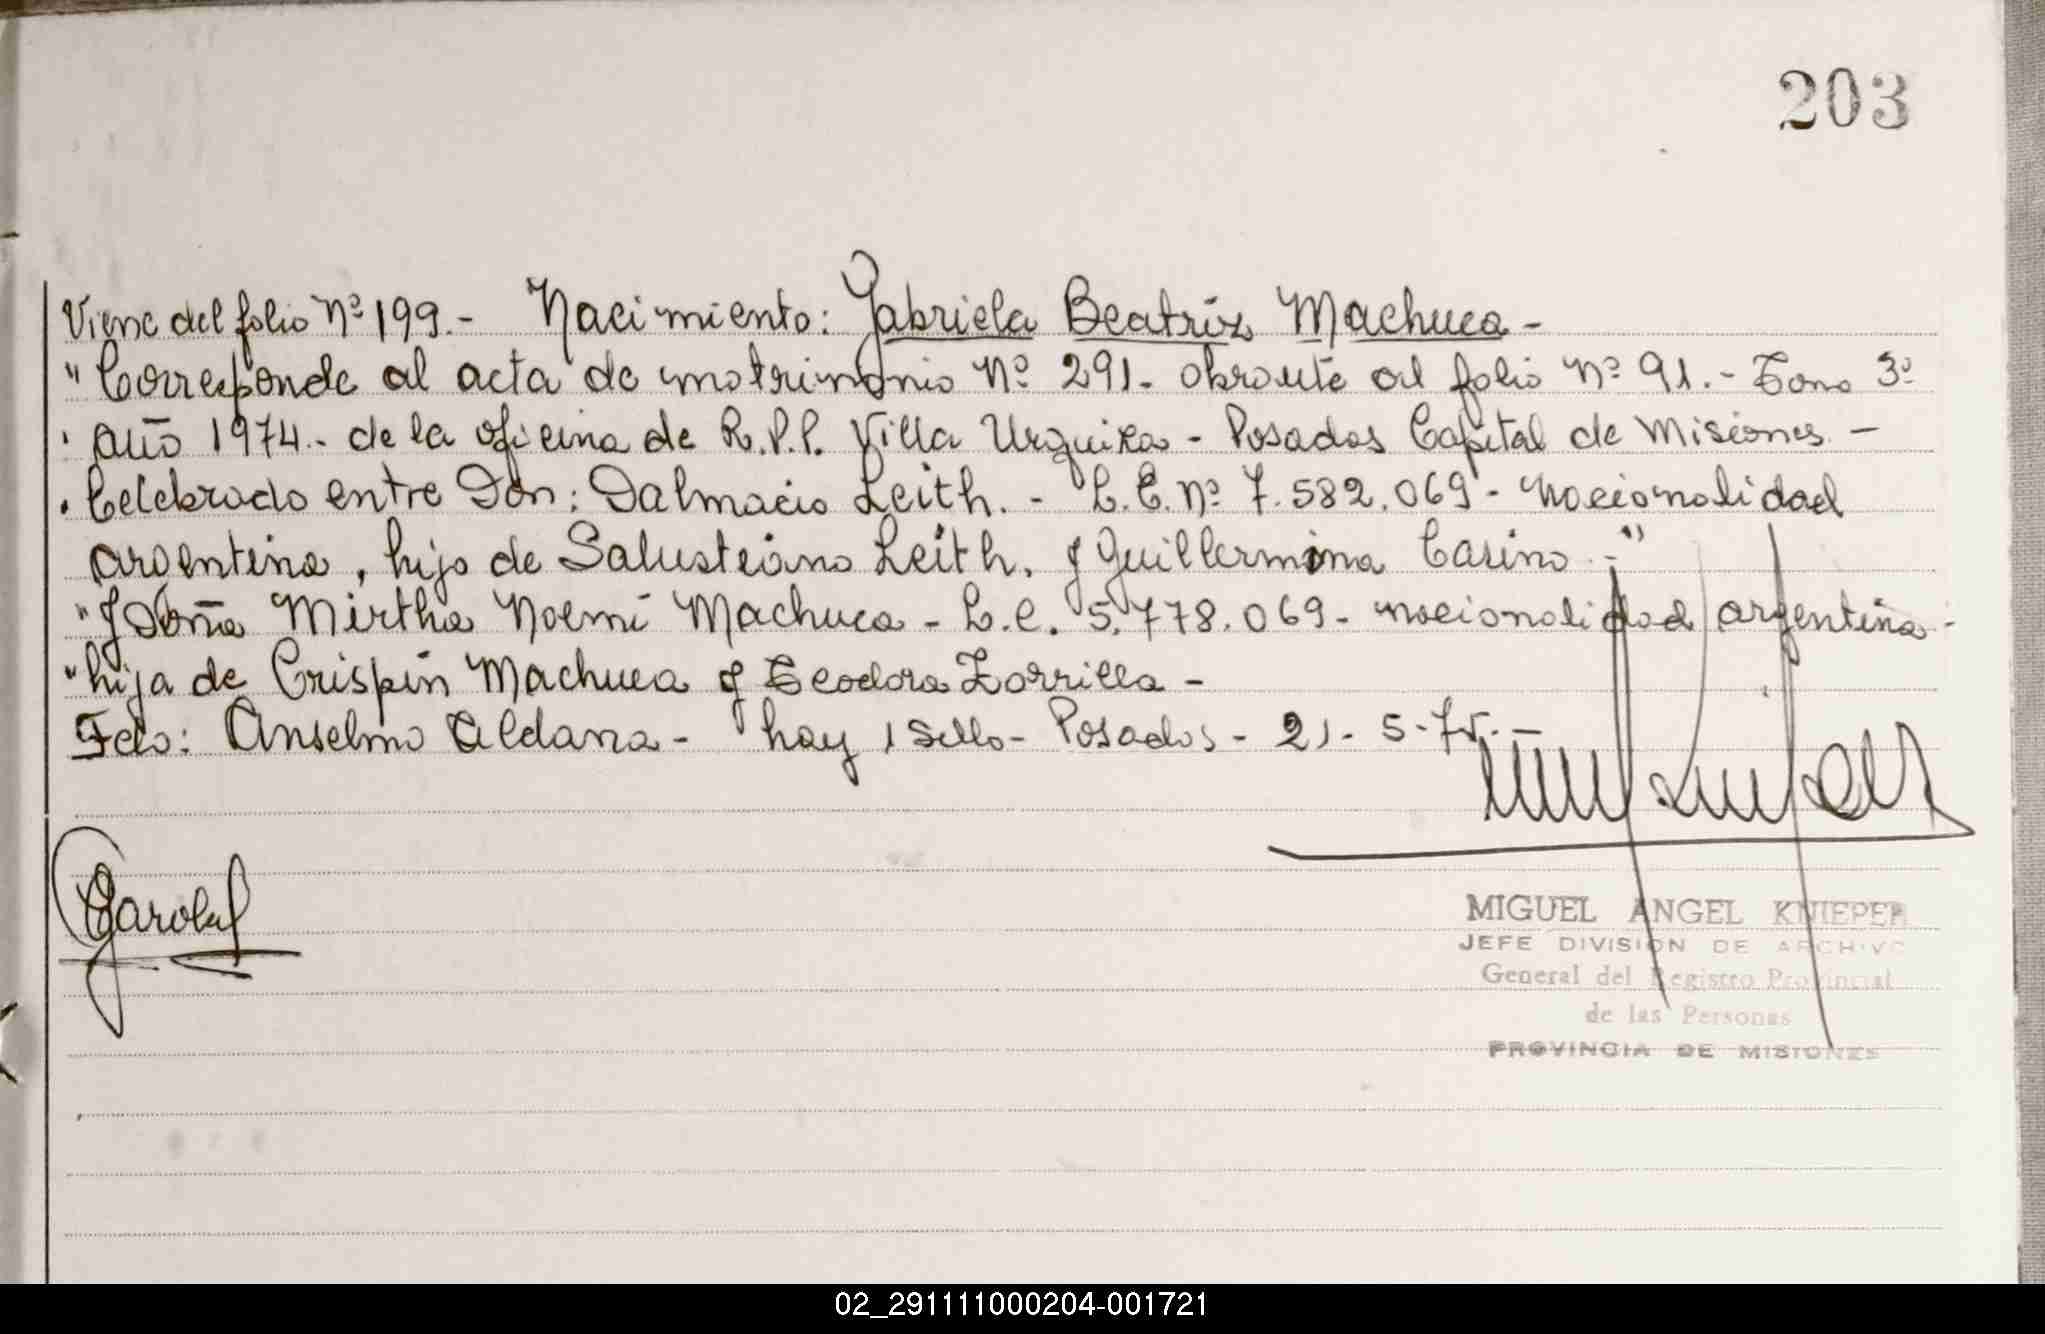 203
Viene del folio Nº 199.- Nacimiento: Gabriela Beatriz Machuca -
"Corresponde al acta de matrimonio Nº 291- obrante al folio Nº 91.- Tomo 3º
" año 1974.- de la oficina de R.P.P. Villa Urquiza - Posadas Capital de Misiones. -
" Celebrado entre Don: Dalmacio Leith. - L.E. Nº 7.582.069 - nacionalidad
argentina, hijo de Salustiano Leith, y Guillermina Carino.-"
"y Doña Mirtha Noemí Machuca - L.C. 5.778.069 - nacionalidad argentina -
"hija de Crispín Machuca y Teodora Zorrilla -
Fdo: Anselmo Aldana - hay 1 sello - Posadas - 21- 5-75.-
MIGUEL ANGEL KNIEPER
JEFE DIVISION DE ARCHIVO
General del Registro Provincial
de las Personas
PROVINCIA DE MISIONES
02_291111000204-001721